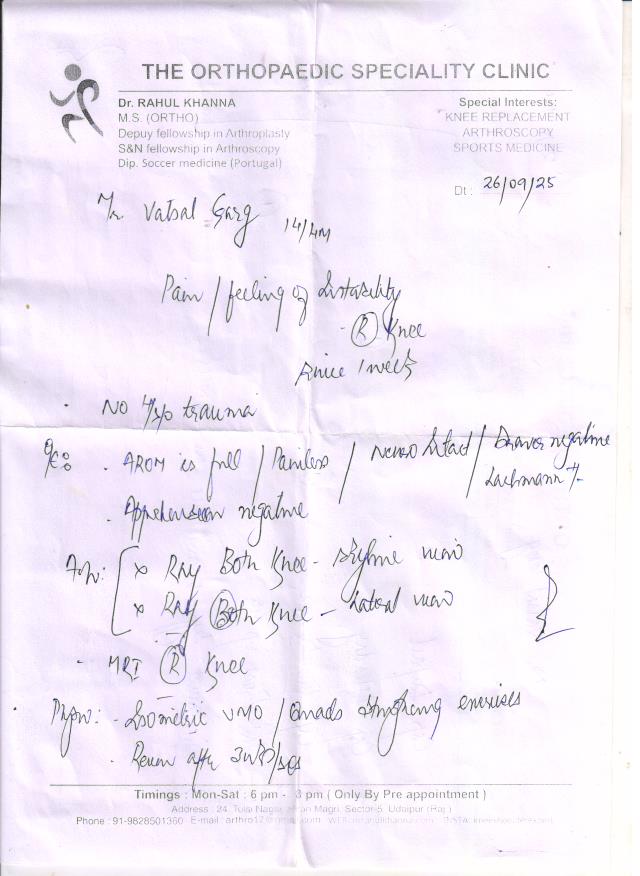 THE ORTHOPAEDIC SPECIALITY CLINIC
Dr. RAHUL KHANNA
M.S. (ORTHO)
Depuy fellowship in Arthroplasty
S&N fellowship in Arthroscopy
Dip. Soccer medicine (Portugal)
Special Interests:
KNEE REPLACEMENT
ARTHROSCOPY
SPORTS MEDICINE
Dt : 26/09/25
Mr Vatsal Garg 14/M
Pain / feeling of Instability
- R Knee
Since 1 week
No H/o trauma
O/E: . AROM is full / Painless / Neuro Intact / Drawer negative
Lachmann
. Apprehension negative
Adv: X Ray Both Knee - Skyline view
X Ray Both Knee - Lateral view
- MRI R Knee
Physio: - Isometric VMO / Quads strengthening exercises
. Review after
Timings : Mon-Sat : 6 pm - 8 pm ( Only By Pre appointment )
Address : 24, Tulsi Nagar, Magri, Sector-5, Udaipur (Raj.)
Phone : 91-9828501360 E-mail :